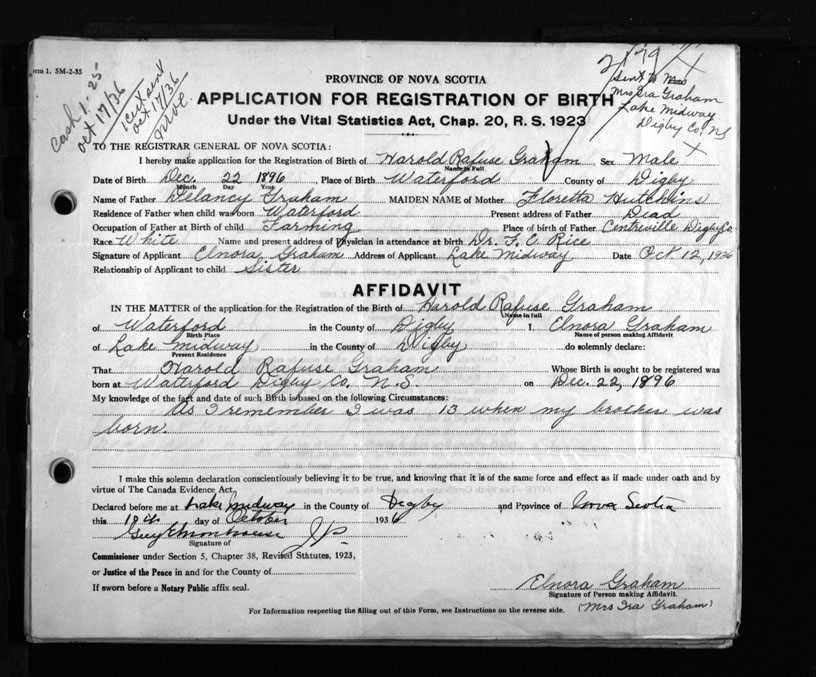 orm 1. 5M-2-35
Cash 1.25
Oct 17/36
1 Cert sent
Oct 17/36
above
Sent to Mrs
Mrs Ira Graham
Lake Midway
Digby Co NS
PROVINCE OF NOVA SCOTIA
APPLICATION FOR REGISTRATION OF BIRTH
Under the Vital Statistics Act, Chap. 20, R. S. 1923
TO THE REGISTRAR GENERAL OF NOVA SCOTIA:
I hereby make application for the Registration of Birth of Harold Rafuse Graham Sex Male
Name in Full
Date of Birth Dec. 22 1896 Place of Birth Waterford County of Digby
Month Day Year
Name of Father Delancy Graham MAIDEN NAME of Mother Floretta Hutchins
Residence of Father when child was born Waterford Present address of Father Dead
Occupation of Father at Birth of child Farming Place of birth of Father Centreville Digby Co.
Race White Name and present address of Physician in attendance at birth Dr. F. E. Rice
Signature of Applicant Elnora Graham Address of Applicant Lake Midway Date Oct 12, 1936
Relationship of Applicant to child Sister
AFFIDAVIT
IN THE MATTER of the application for the Registration of the Birth of Harold Rafuse Graham
Name in full
of Waterford in the County of Digby I, Elnora Graham
Birth Place Name of person making Affidavit
of Lake Midway in the County of Digby do solemnly declare:
Present Residence
That Harold Rafuse Graham Whose Birth is sought to be registered was
born at Waterford Digby Co. N.S. on Dec. 22, 1896
My knowledge of the fact and date of such Birth is based on the following Circumstances:
As I remember I was 13 when my brother was
born.
I make this solemn declaration conscientiously believing it to be true, and knowing that it is of the same force and effect as if made under oath and by
virtue of The Canada Evidence Act.
Declared before me at Lake Midway in the County of Digby and Province of Nova Scotia
this day of October 1936
Guy J.P.
Signature of
Commissioner under Section 5, Chapter 38, Revised Statutes, 1923,
or Justice of the Peace in and for the County of
If sworn before a Notary Public affix seal.
Elnora Graham
Signature of Person making Affidavit.
(Mrs Ira Graham)
For Information respecting the filling out of this Form, see Instructions on the reverse side.